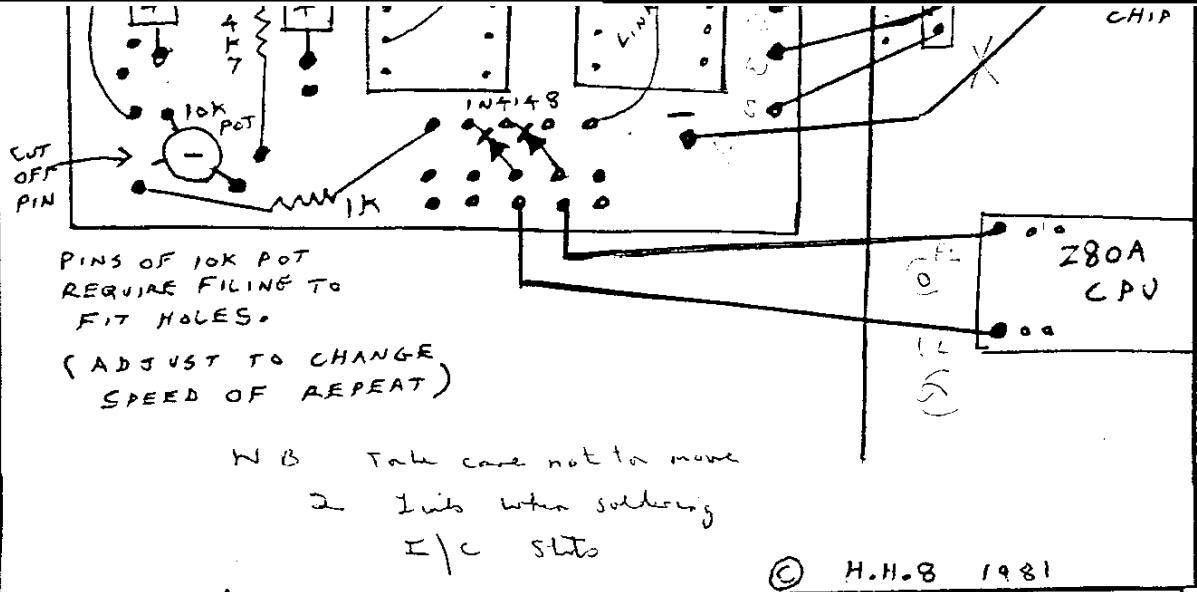 CHIP
4
K
7
LINK
1N4148
10K
POT
CUT
OFF
PIN
1K
Z80A
CPU
PINS OF 10K POT
REQUIRE FILING TO
FIT HOLES.
(ADJUST TO CHANGE
SPEED OF REPEAT)
NB Take care not to move
2 links when soldering
I/C
© H.H.8 1981